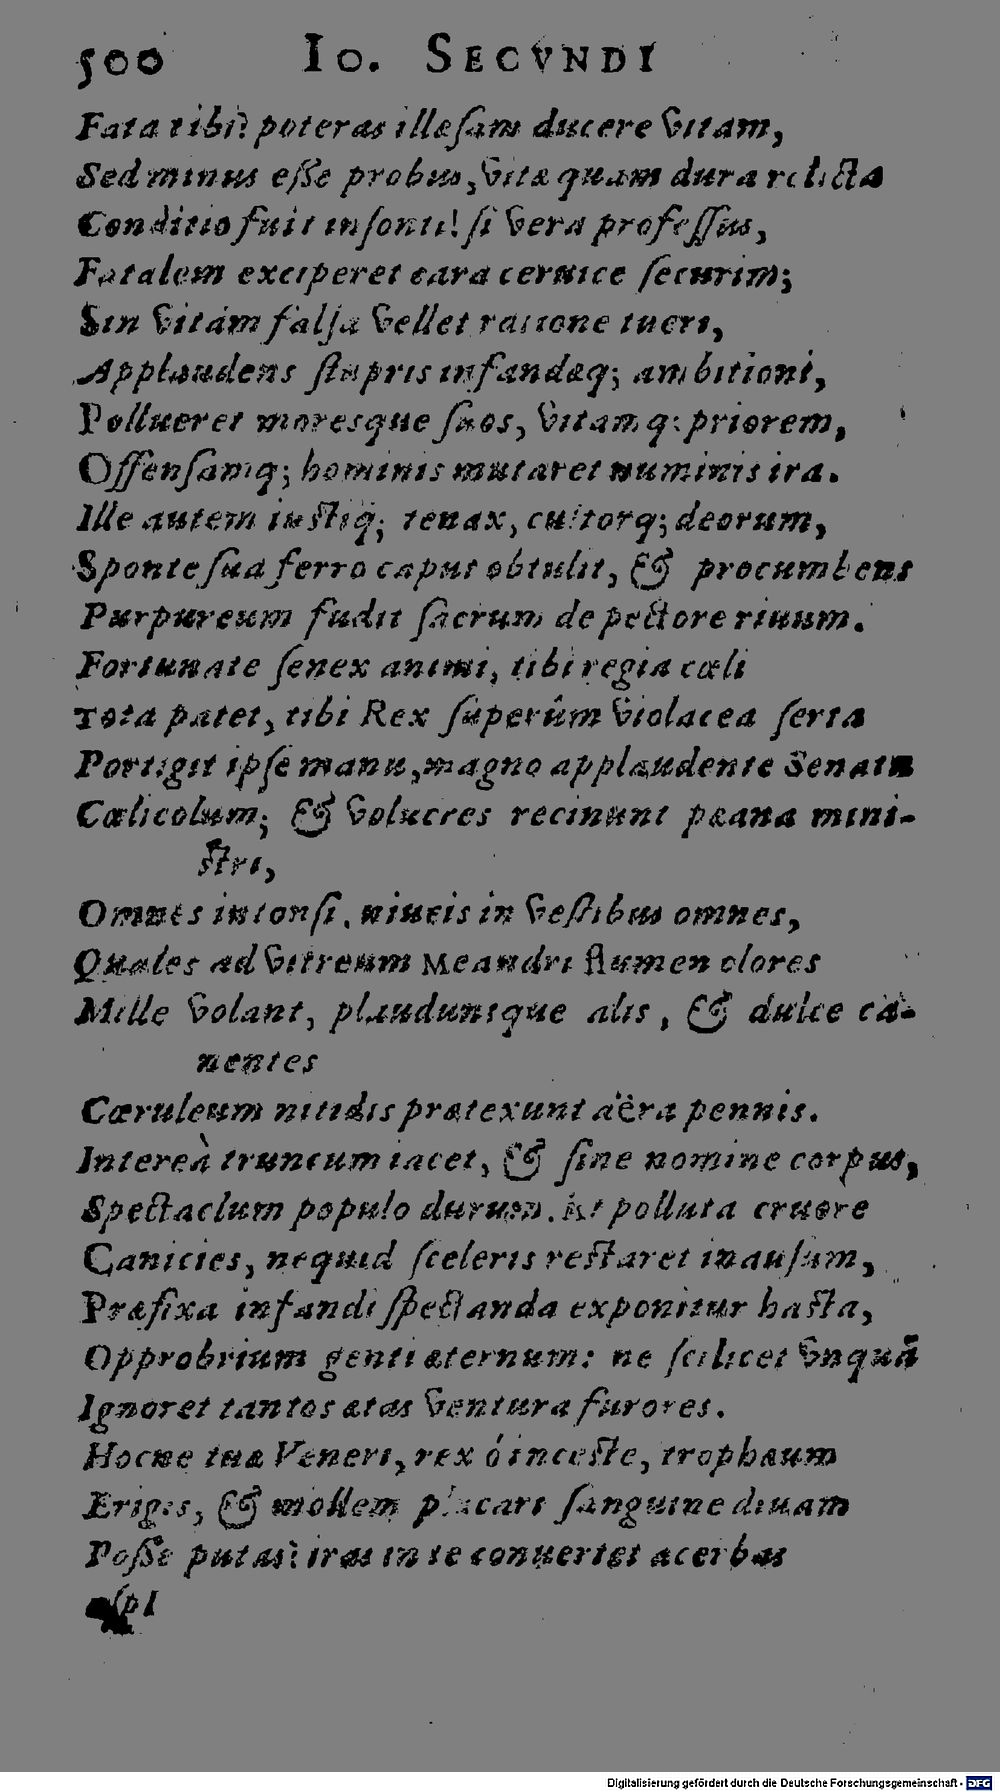 500 IO. SECVNDI
Fata tibi? poteras illæsam ducere vitam,
Sed minus esse probus, vitæ quam dura relicta
Conditio fuit insonti! si vera professus,
Fatalem exciperet cara ceruice securim;
Sin vitám falsa vellet ratione tueri,
Applaudens stupris infandæq; ambitioni,
Pollueret moresque suos, vitamq; priorem,
Offensamq; hominis mutaret numinis ira.
Ille autem iustiq; tenax, cultorq; deorum,
Sponte sua ferro caput obtulit, & procumbens
Purpureum fudit sacrum de pectore riuum.
Fortunate senex animi, tibi regia cœli
Tota patet, tibi Rex superûm violacea serta
Porrigit ipse manu, magno applaudente Senatu
Cœlicolum; & volucres recinunt pæana mini-
stri,
Omnes intonsi, niueis in vestibus omnes,
Quales ad vitreum Meandri flumen olores
Mille volant, plauduntque alis, & dulce ca-
nentes
Cæruleum nitidis prætexunt aëra pennis.
Intereà truncum iacet, & sine nomine corpus,
Spectaclum populo durum. At polluta cruore
Canicies, nequid sceleris restaret inausum,
Præfixa infandi spectanda exponitur hasta,
Opprobrium genti æternum: ne scilicet vnquã
Ignoret tantos ætas ventura furores.
Hocne tuæ Veneri, rex ó inceste, trophæum
Erigis, & mollem placari sanguine diuam
Posse putas? iras in te conuertet acerbas
Ipsa